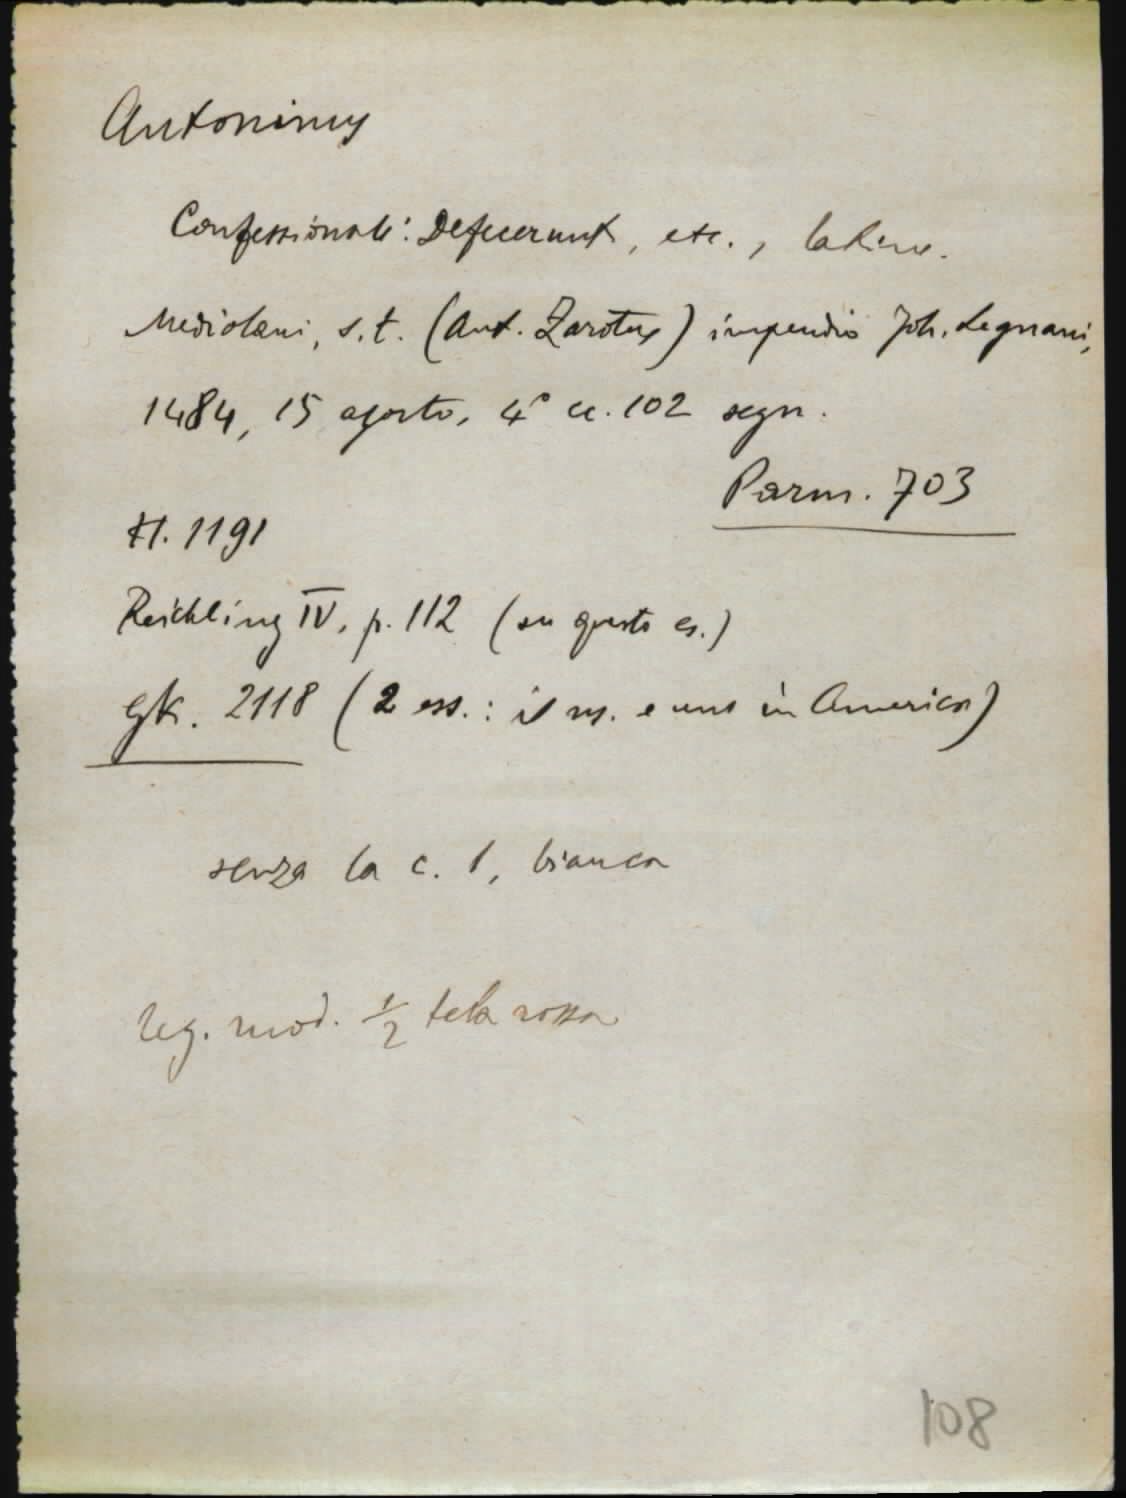 Antoninus
Confessionale: Defecerunt, etc., latine.
Mediolani, s.t. (Ant. Zarotus) impendio Joh. Legnani,
1484, 15 agosto, 4° cc. 102 segn.
Parm. 703
H. 1191
Reichling IV, p. 112 (su questo es.)
GK. 2118 (2 ess.: il ns. e uno in America)
senza la c. 1, bianca
leg. mod. ½ tela rossa
108